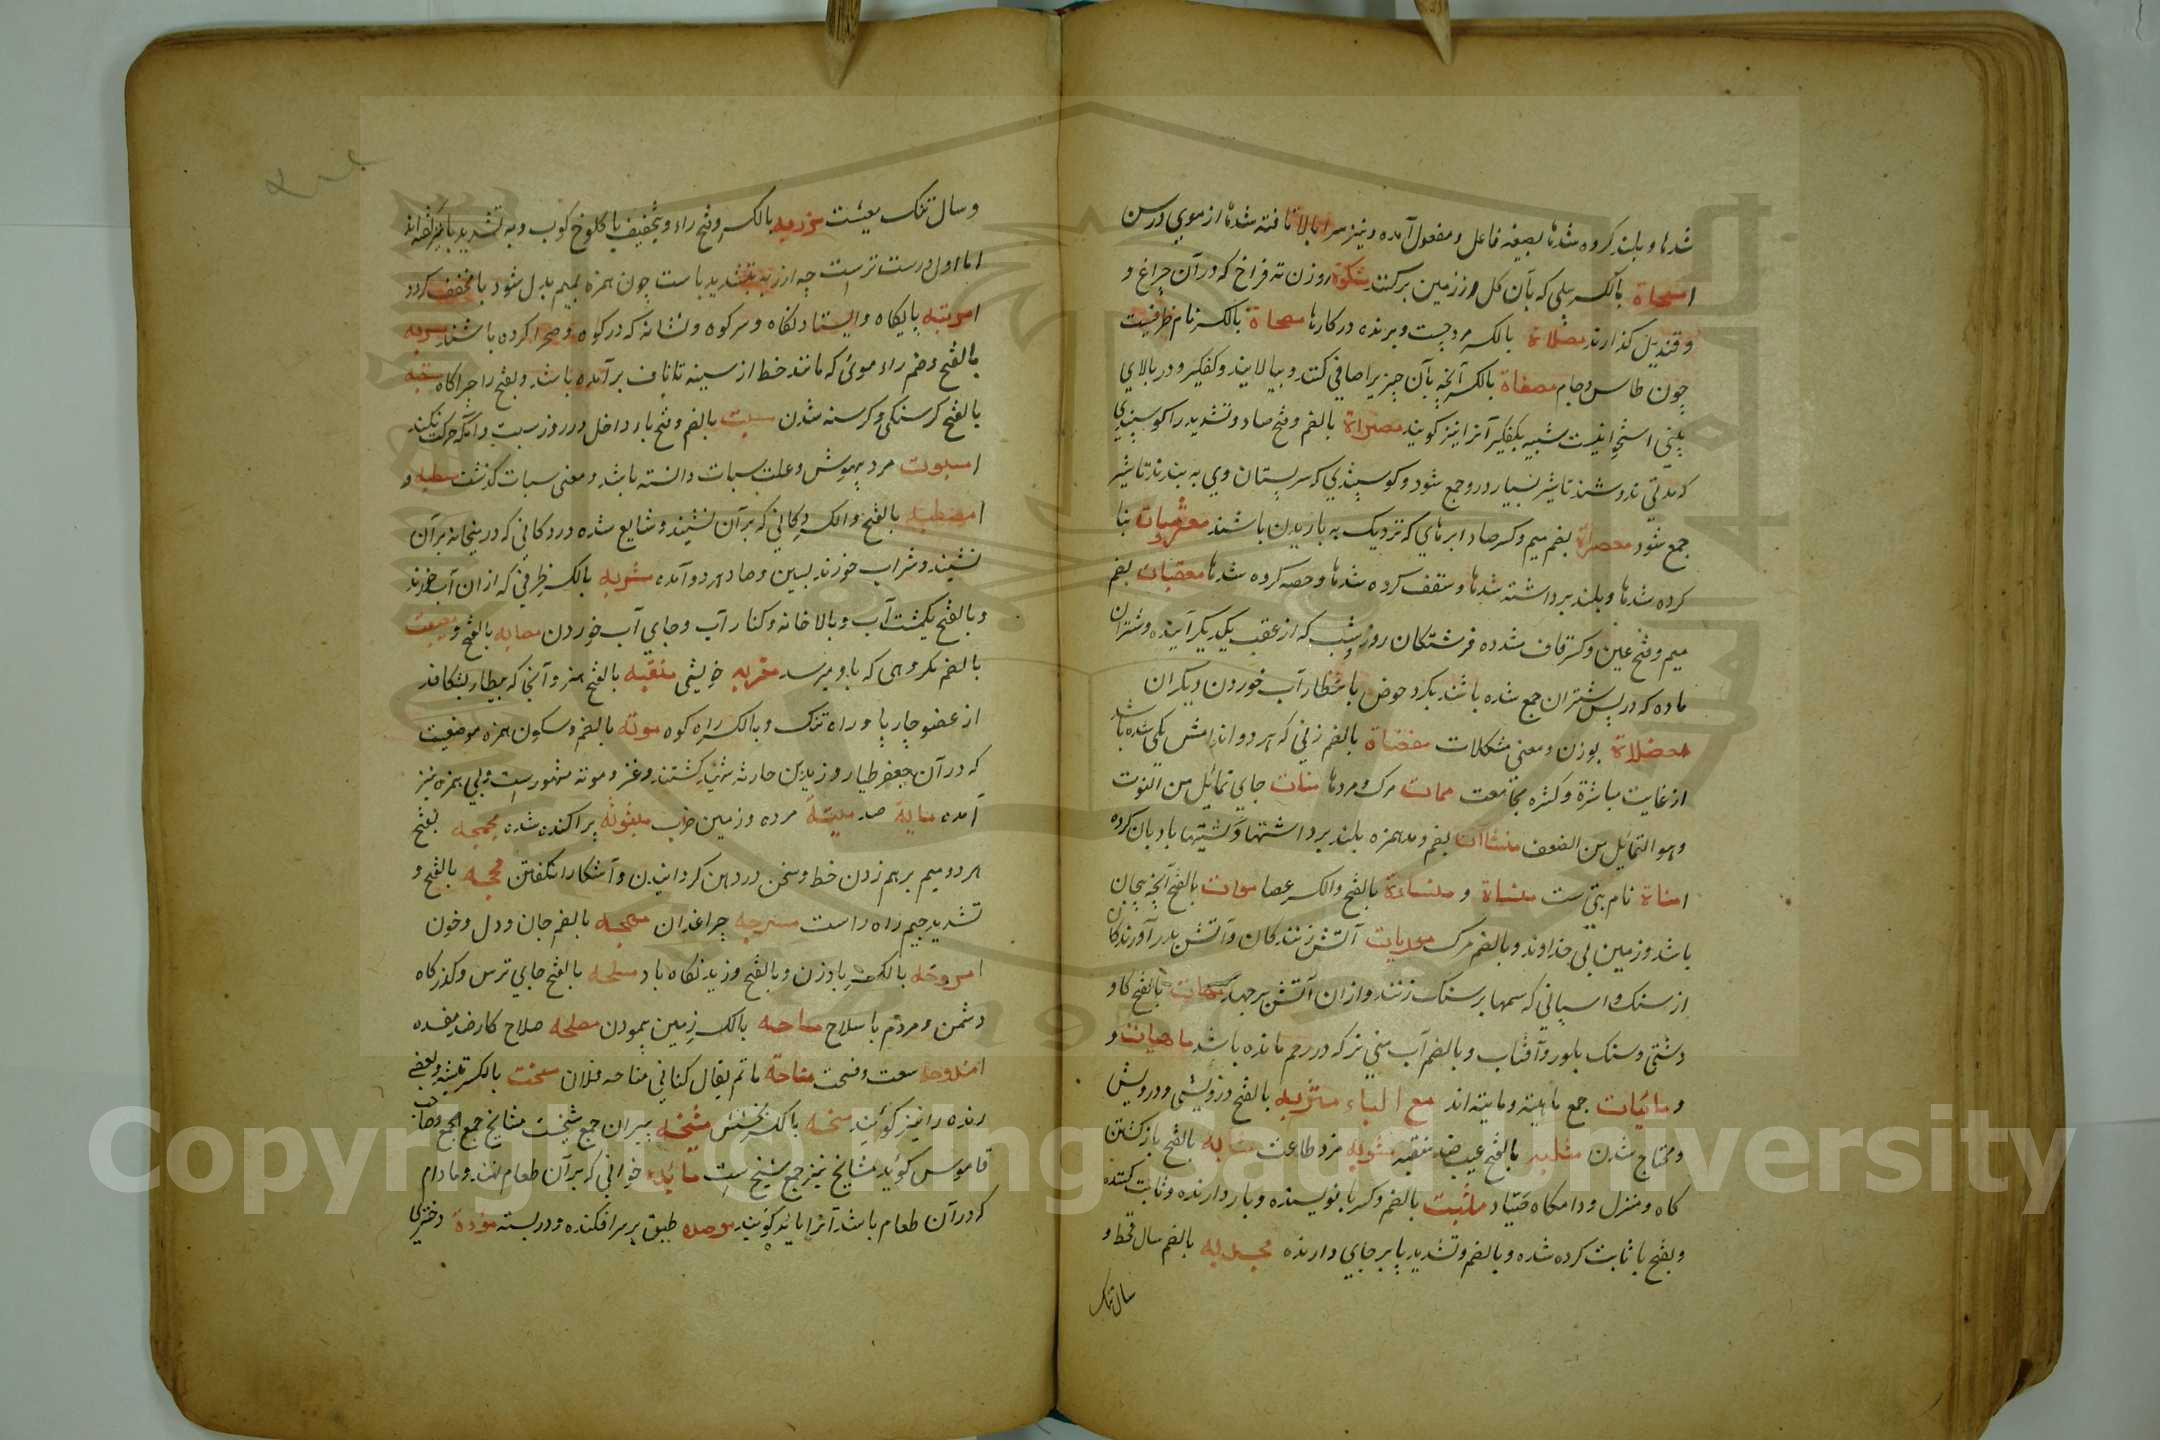 شدها و بلند کرده شدها بصیغه فاعل و مفعول آمده و نیز سرا بالا تافته شدها از موی و رسن
مسحاة بالکسر بیلی که بآن کل از زمین برکنند مشکوة روزن ته فراخ که در آن چراغ و
و قندیل کذارند مصلاة بالکسر مرد چست و برنده در کارها مسحاة بالکسر نام ظرفیست
چون طاس و جام مصفاة بالکسر آنچه بآن چیزیرا صافی کنند و بپالایند و کفکیر و در بالای
شبیه بکفکیر آنرا نیز کویند مصراة بالضم و فتح صاد و تشدید را کوسپندی
که مدتی ندوشند تا شیر بسیار درو جمع شود و کوسپندی که سر پستان وی به بندند تا شیر
جمع شود معصرات بضم میم و کسر صاد ابرهای که نزدیک به باریدن باشند معروشات بنا
کرده شدها و بلند برداشته شدها و سقف کرده شدها و حصه کرده شدها معقبات بضم
میم و فتح عین و کسر قاف مشدده فرشتکان روز و شب که از عقب یکدیکر آینده و شتران
ماده که در پس شتران جمع شده باشند بکرد حوض بانتظار آب خوردن دیکران
معضلات بوزن و معنی مشکلات مفضاة بالضم زنی که هر دو اندامش یکی شده باشد
از غایت مباشرة و کثرة مجامعت ممات مرک و مردها منات جای تمائل من النوت
و هو التمائل من الضعف منشاآت بضم و مد همزه بلند برداشتها و کشتیها بادبان کرده
مناة نام بتی ست منساة و منساءة بالفتح والکسر عصا موات بالفتح آنچه بیجان
باشد و زمین بی خداوند و بالضم مرک موریات آتش زنندکان و آتش بدر آورندکان
از سنک و اسپانی که سمها بر سنک زنند و از ان آتش برجهد مهات بالفتح کاو
دشتی و سنک بلور و آفتاب و بالضم آب منی نر که در رحم ماده باشد ماهیات و
و مائیات جمع ماهیته و مایته اند مع الباء متربه بالفتح درویشی و درویش
و محتاج شدن مثلبه بالفتح عیب ضد منقبه مثوبه مزد طاعت مثابه بالفتح بازکشتن
کاه و منزل و دامکاه صیاد مثبت بالضم و کسر با نویسنده و بار دارنده و ثابت کننده
و بفتح با ثابت کرده شده و بالضم و تشدید با بر جای دارنده مجدبه بالضم سال قحط و
سال تنک
و سال تنک معیشت مرزبه بالکسر و فتح راء و تخفیف با کلوخ کوب و به تشدید با نیز کفته اند
اما اول درست ترست چه ارزبه بتشدید باست چون همزه بمیم بدل شود با مخفف کردد
مرتبه پایکاه و ایستادنکاه و سرکوه و نشانه که در کوه و صحرا کرده باشند مسربه
بالفتح و ضم راء موئی که مانند خط از سینه تا ناف برآمده باشد و بفتح را چراکاه مسغبه
بالفتح کرسنکی و کرسنه شدن مسبت بالضم و فتح با در داخل در روز سبت و آنکه حرکت نکند
مسبوت مرد بیهوش و علت سبات دانسته باشد و معنی سبات کذشت مسطبه و
مصطبه بالفتح والکسر دکانی که بر آن نشینند و شایع شده در دکانی که در میخانه بر آن
نشینند و شراب خورند بسین و صاد هر دو آمده مشربه بالکسر ظرفی که از ان آب خورند
و بالفتح یکمشت آب و بالاخانه و کنار آب و جای آب خوردن مصابه بالفتح و مصیبت
بالضم مکروهی که باو برسد مقربه خویشی منقبه بالفتح هنر و آنجا که بیطار بشکافد
از عضو چارپا و راه تنک و بالکسر راه کوه موته بالضم و سکون همزه موضعیست
که در آن جعفر طیار و زید بن حارثه شهید کشتند و غزو موته مشهورست و بی همزه نیز
آمده مایة صد میتة مرده و زمین خراب مبثوثه پراکنده شده مجمجه بفتح
هر دو میم برهم زدن خط و سخن در دهن کردانیدن و آشکارا نکفتن محجه بالفتح و
تشدید جیم راه راست مسرجه چراغدان مهجه بالضم جان و دل و خون
مروحه بالکسر بادزن و بالفتح وزیدنکاه باد مسلحه بالفتح جای ترس و کذرکاه
دشمن و مردم با سلاح مساحه بالکسر زمین پیمودن مصلحه صلاح کار ضد مفسده
مندوحه سعت و فسحت مناحة ماتم یقال کنا فی مناحه فلان مسخت بالکسر تیشه و بعضی
رنده را نیز کویند مشیخه پیران جمع شیخست مشایخ جمع الجمع و صاحب
قاموس کوید مشایخ نیز جمع شیخ ست مائده خوانی که بر آن طعام نهند و مادام
که در آن طعام باشد آنرا مائده کویند موصده طبق بر سر افکنده و در بسته موؤده دختری